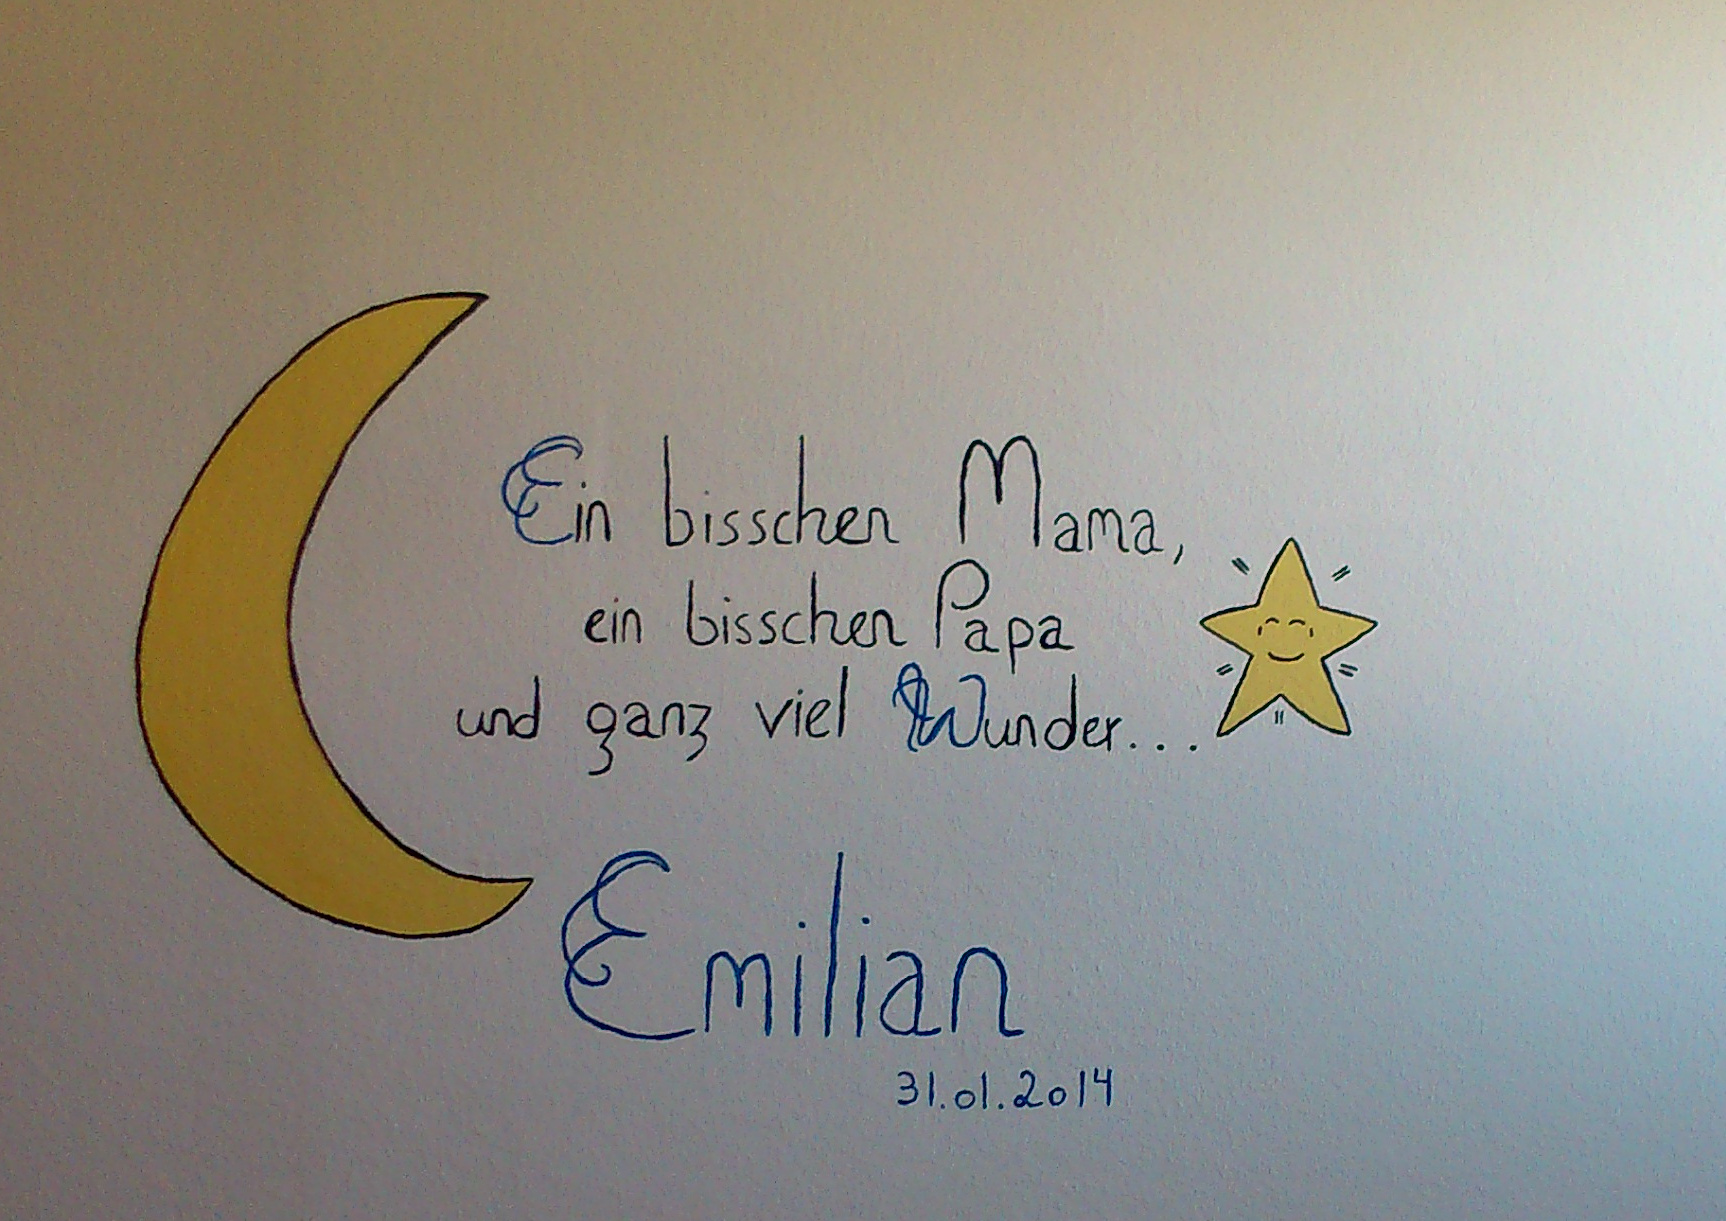 Ein bisschen Mama,
ein bisschen Papa
und ganz viel Wunder...
Emilian
31.01.2014